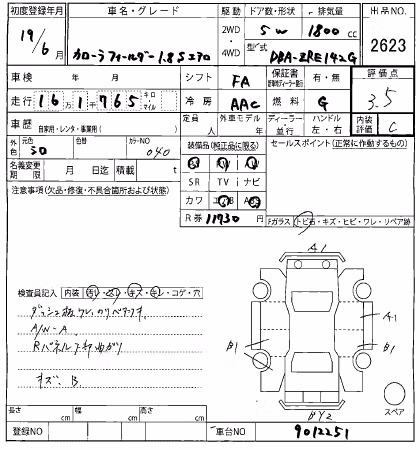 初度登録年月 車名・グレード 駆動 ドア数・形状 排気量 出品NO
19/6月 カローラフィールダー1.8Sエアロ 2WD・4WD 5W 1800cc 2623
型式 DBA-ZRE142G
車検 年 月 シフト FA 保証書 有・無 評価点
走行 16万1千765 キロ マイル 冷房 AAC 燃料 G 3.5
車歴 自家用・レンタ・事業用( ) 定員 人 外車モデル 年 ディーラー・並行 ハンドル 左・右 内装評価 C
外色 元色 30 色替 カラーNO 040 装備品(純正品に限る) セールスポイント(正常に作動するもの)
名義変更期限 月 日迄 積載 t SR TV ナビ
注意事項(欠品・修復・不具合箇所および状態) カワ
R券 11730 Fガラス トビ石・キズ・ヒビ・ワレ・リペア跡
A1
検査員記入 内装 汚レ・スレ・キズ・キレ・コゲ・穴
ダッシュ板ワレ、のりペアワキ
A/W-A A1
Rパネル下部曲ガリ B1 B1
キズ、B
スペア
BY2
長さ cm 幅 cm 高さ cm
登録NO 車台NO 9012251